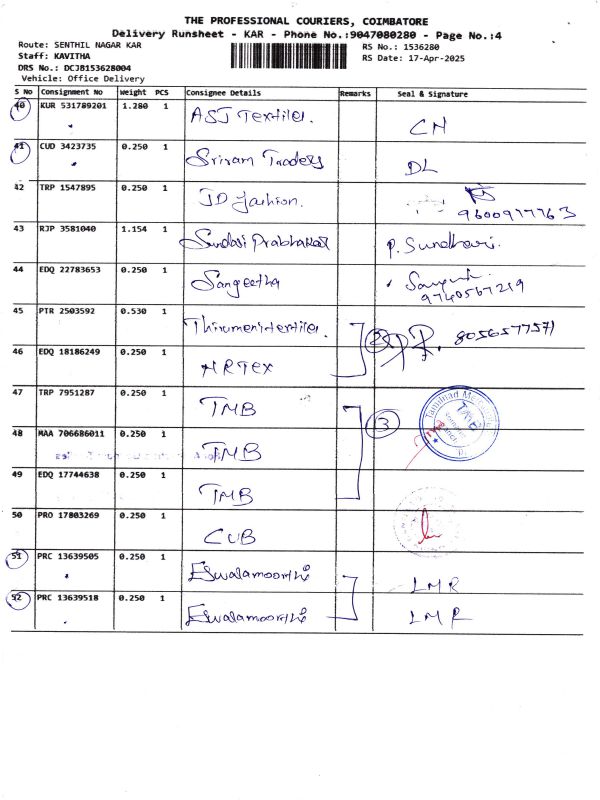 THE PROFESSIONAL COURIERS, COIMBATORE
Delivery Runsheet - KAR - Phone No.:9047080280 - Page No.:4
Route: SENTHIL NAGAR KAR
RS No.: 1536280
Staff: KAVITHA
RS Date: 17-Apr-2025
DRS No.: DCJB153628004
Vehicle: Office Delivery
S No Consignment No Weight PCS Consignee Details Remarks Seal & Signature
40 KUR 531789201 1.280 1 ASJ Textiles. CN
41 CUD 3423735 0.250 1 Sriram Traders DL
42 TRP 1547895 0.250 1 JD fashion. 9600977763
43 RJP 3581040 1.154 1 Sundari Prabhakar P. Sundhari.
44 EDQ 22783653 0.250 1 Sangeetha
9740567219
45 PTR 2503592 0.530 1 Thirumeni textiles. 2 8056577571
46 EDQ 18186249 0.250 1 HRTEX
47 TRP 7951287 0.250 1 TMB
48 MAA 706686011 0.250 1 TMB 3
49 EDQ 17744638 0.250 1 TMB
50 PRO 17803269 0.250 1 CUB
51 PRC 13639505 0.250 1 Eswaramoorthi LMR
52 PRC 13639518 0.250 1 Eswaramoorthi LMR